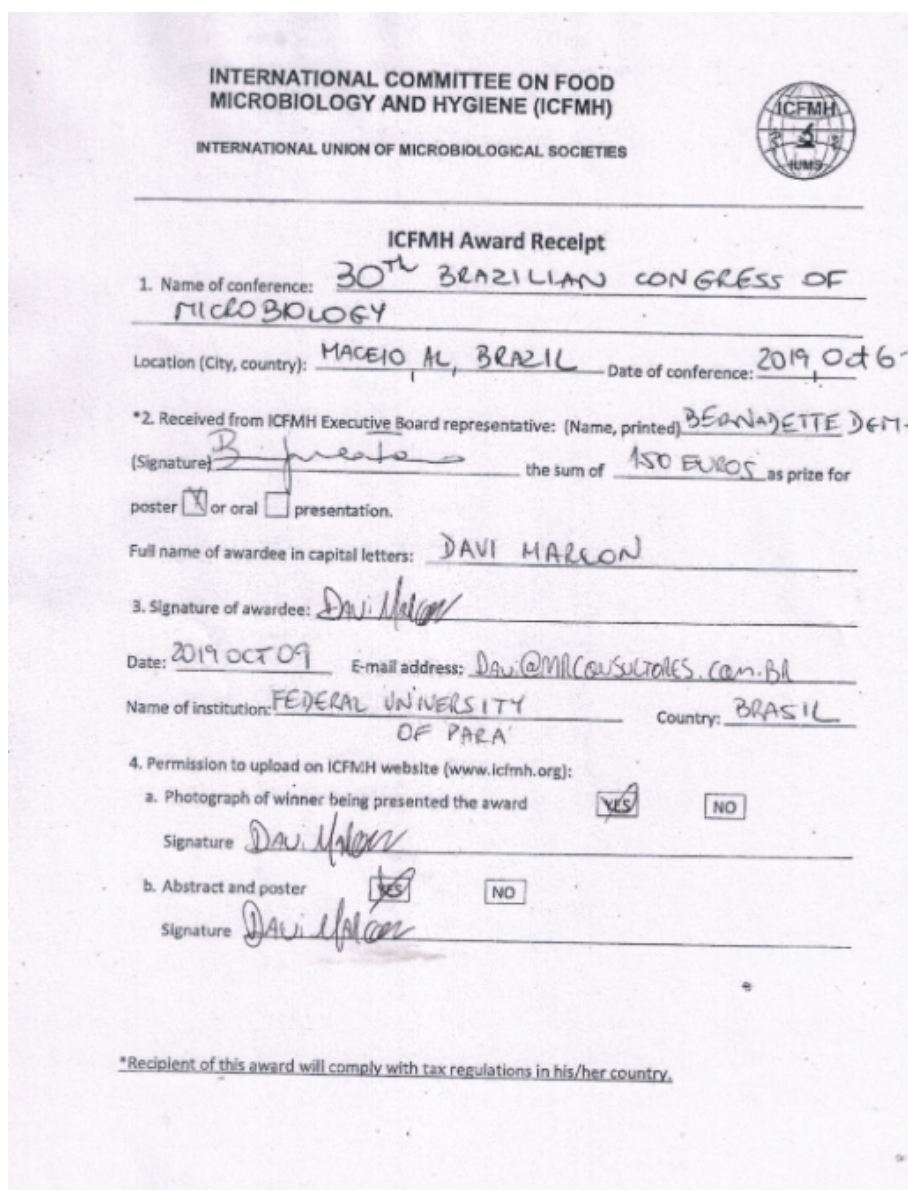 INTERNATIONAL COMMITTEE ON FOOD
MICROBIOLOGY AND HYGIENE (ICFMH)
INTERNATIONAL UNION OF MICROBIOLOGICAL SOCIETIES
ICFMH
IUMS
ICFMH Award Receipt
1. Name of conference: 30TH BRAZILIAN CONGRESS OF
MICROBIOLOGY
Location (City, country): MACEIO AL, BRAZIL Date of conference: 2019, Oct 6-
*2. Received from ICFMH Executive Board representative: (Name, printed) BERNADETTE
(Signature) the sum of 150 EUROS as prize for
poster X or oral presentation.
Full name of awardee in capital letters: DAVI MARCON
3. Signature of awardee: Davi Marcon
Date: 2019 OCT 09 E-mail address: Davi@MRCONSULTORES.COM.BR
Name of institution: FEDERAL UNIVERSITY
OF PARÁ Country: BRASIL
4. Permission to upload on ICFMH website (www.icfmh.org):
a. Photograph of winner being presented the award YES NO
Signature Davi Marcon
b. Abstract and poster YES NO
Signature Davi Marcon
*Recipient of this award will comply with tax regulations in his/her country.